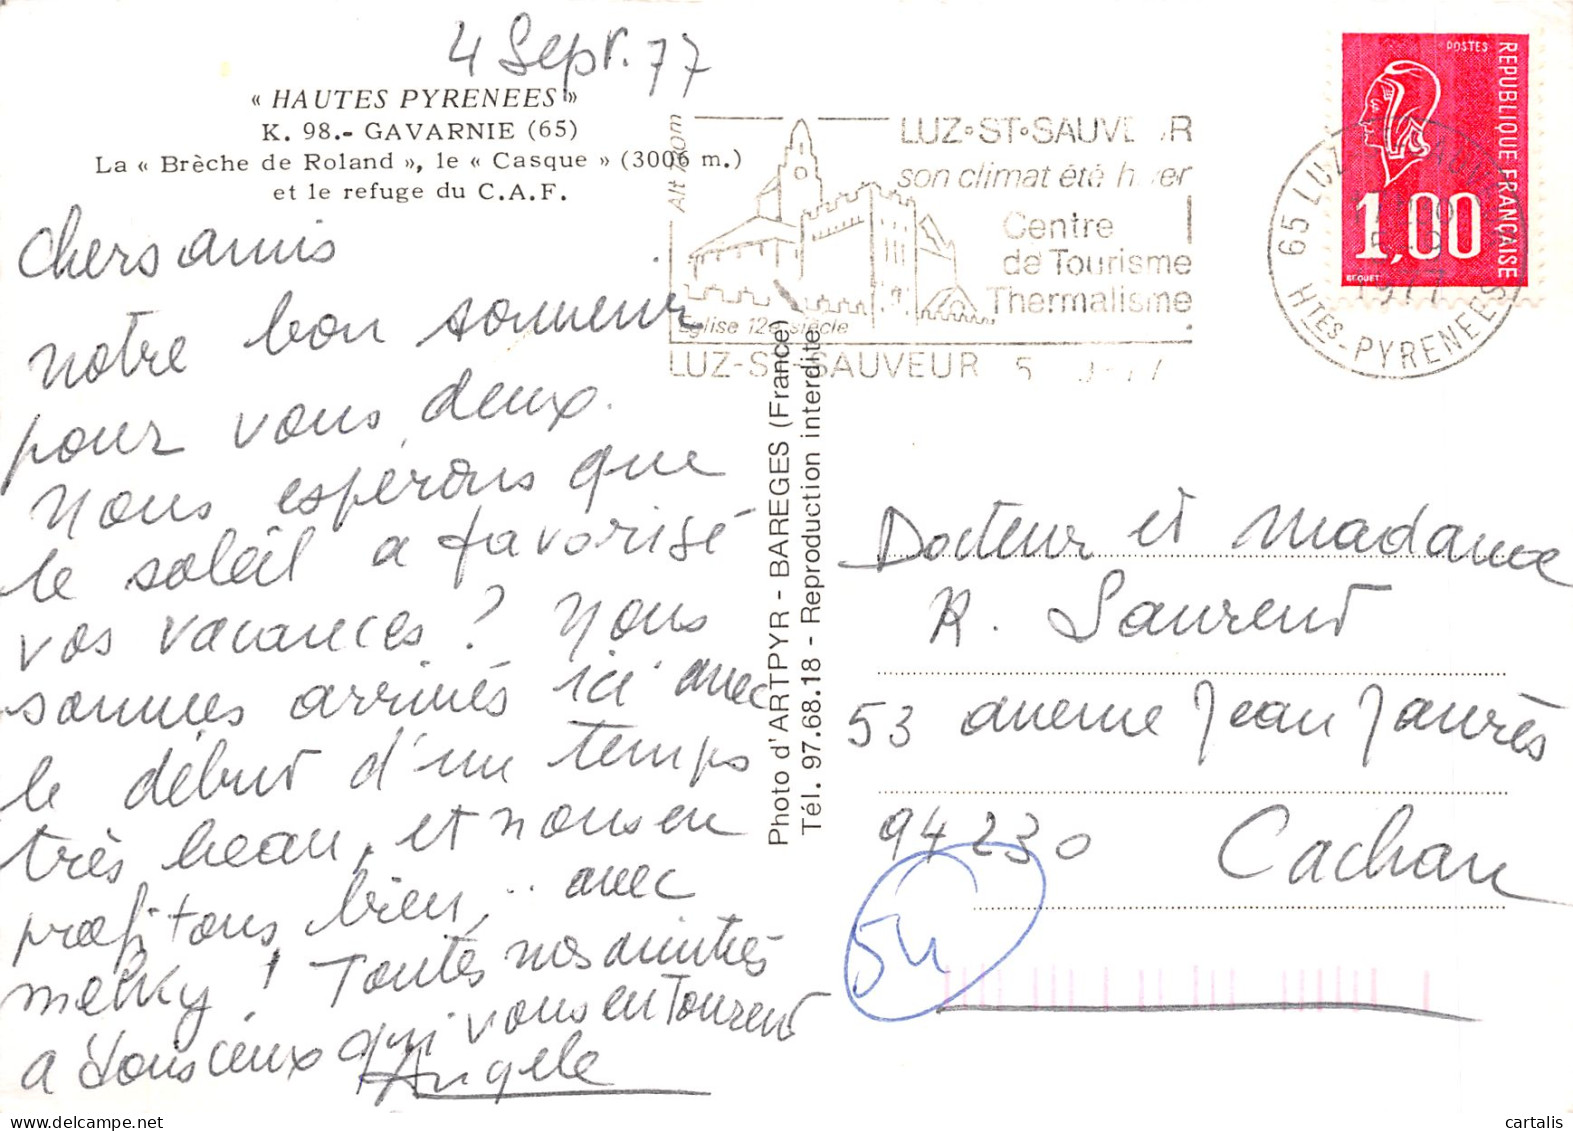 4 Sept. 77
« HAUTES PYRENEES »
K. 98.- GAVARNIE (65)
La « Brèche de Roland », le « Casque » (3006 m.)
et le refuge du C.A.F.
Chers amis
notre bon souvenir
pour vous deux.
Nous espérons que
le soleil a favorisé
vos vacances ? Nous
sommes arrivés ici avec
le début d'un temps
très beau, et nous en
profitons bien, avec
melky ! Toutes nos amitiés
à tous ceux qui vous entourent
Angele
Photo d'ARTPYR - BAREGES (France)
Tél. 97.68.18 - Reproduction interdite
Alt
LUZ-ST-SAUVEUR
son climat été hiver
Centre
de Tourisme
Thermalisme
Eglise 12e siècle
LUZ-ST-SAUVEUR
65 LUZ
5-9
1977
HTES-PYRENEES
POSTES
REPUBLIQUE FRANÇAISE
1,00
BEQUET
Docteur et Madame
R. Laurent
53 avenue Jean Jaurès
94230 Cachan
54
cartalis